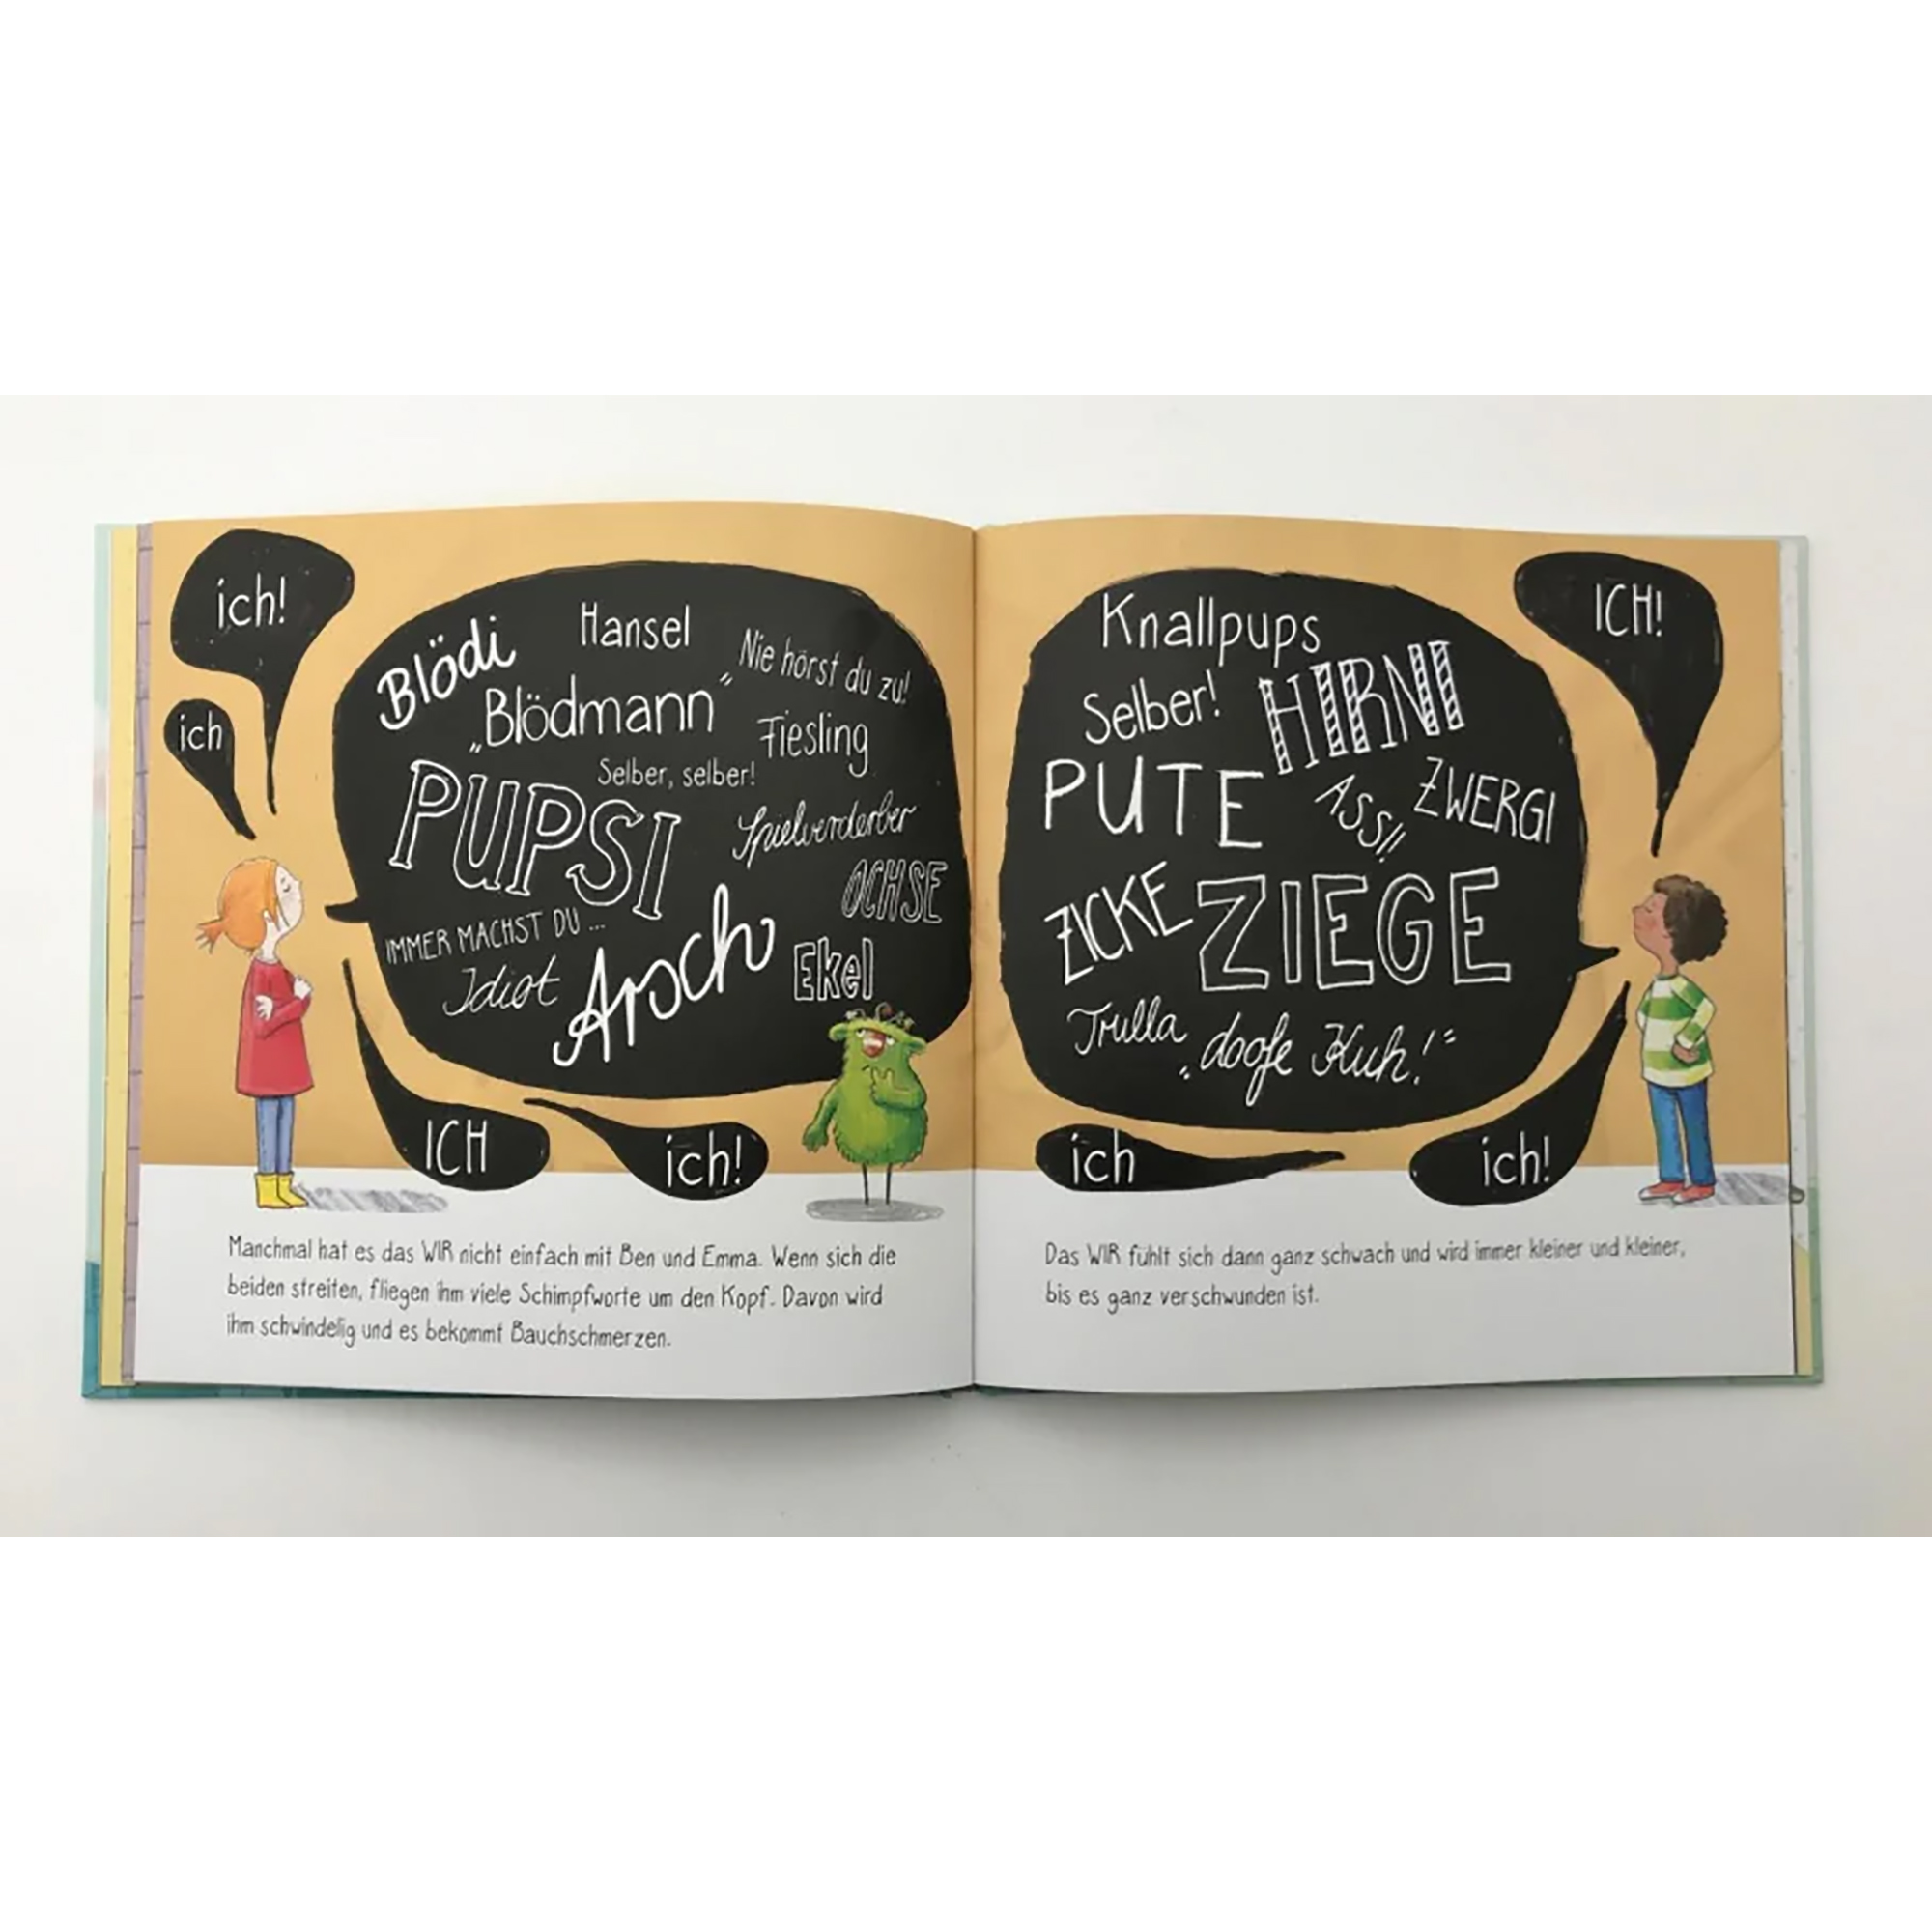 ich!
ich
Blödi
Hansel
Nie hörst du zu!
„Blödmann”
Fiesling
Selber, selber!
PUPSI
Spielverderber
OCHSE
IMMER MACHST DU ...
Idiot
Arsch
Ekel
ICH
ich!
Manchmal hat es das WIR nicht einfach mit Ben und Emma. Wenn sich die
beiden streiten, fliegen ihm viele Schimpfworte um den Kopf. Davon wird
ihm schwindelig und es bekommt Bauchschmerzen.
Knallpups
ICH!
Selber!
HIRNI
PUTE
ASSI!
ZWERGI
ZICKE
ZIEGE
Trulla
„doofe Kuh!“
ich
ich!
Das WIR fühlt sich dann ganz schwach und wird immer kleiner und kleiner,
bis es ganz verschwunden ist.